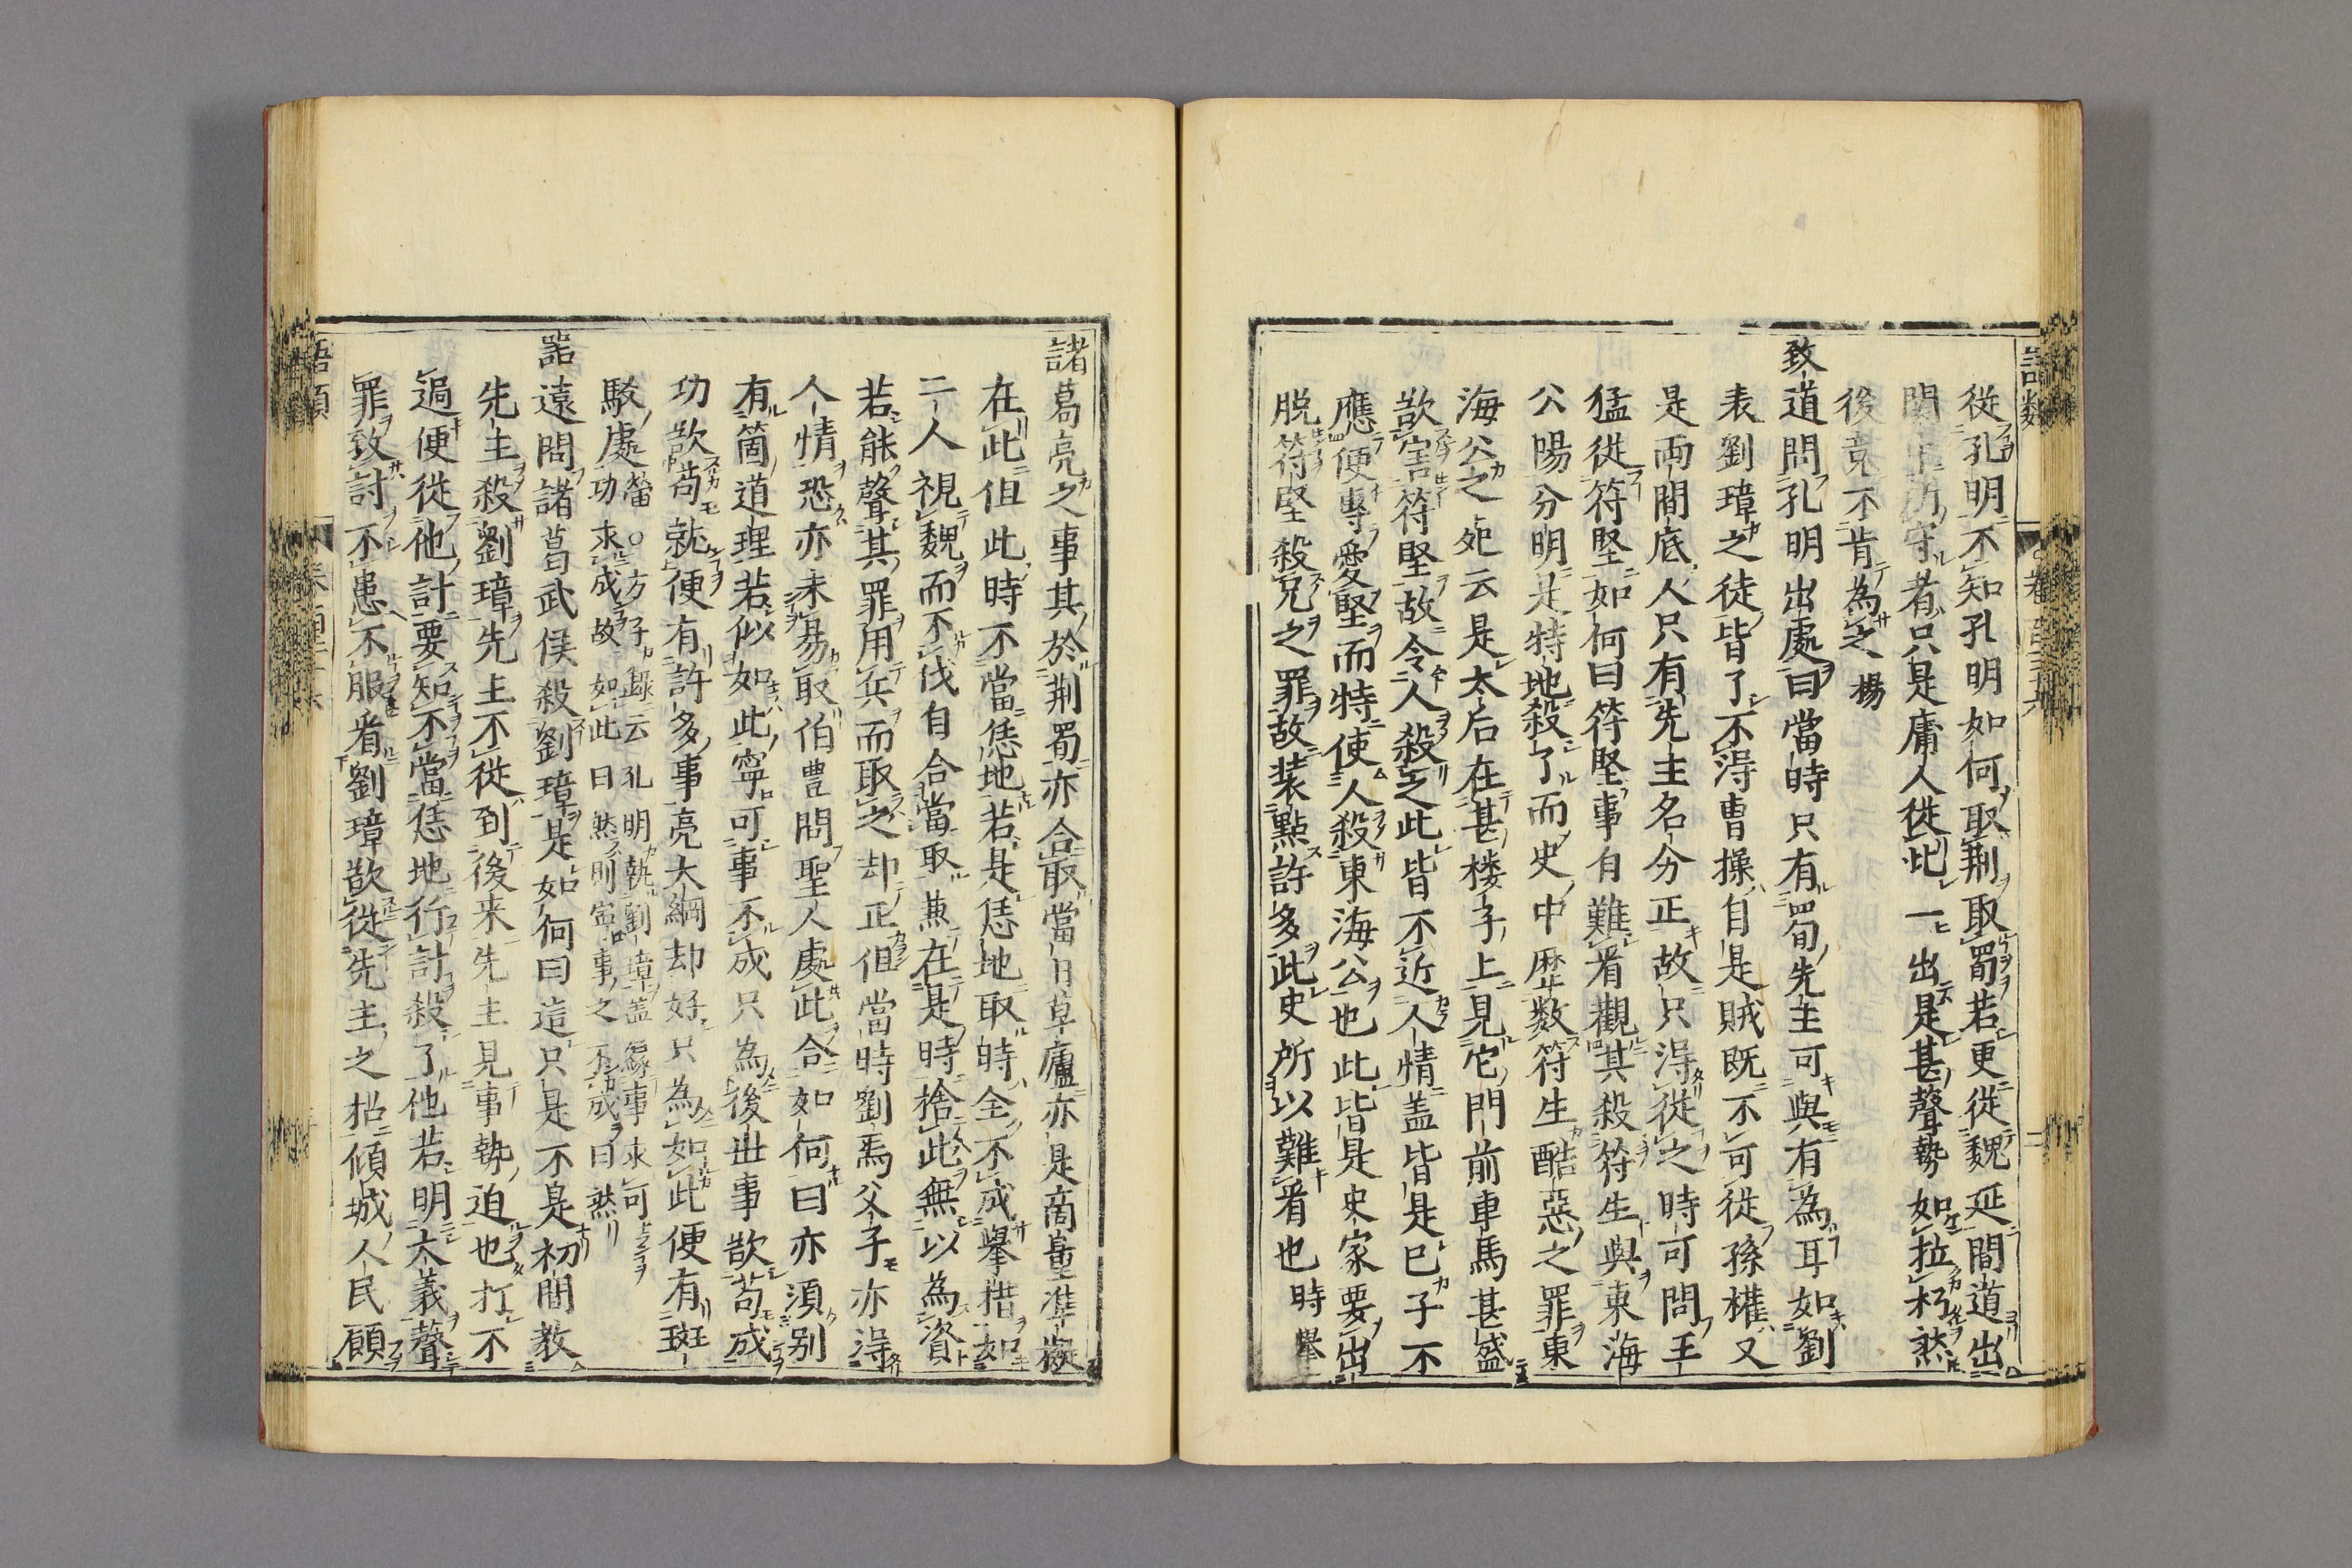 從孔明不知孔明如何取荆取蜀若更從魏延間道出
關中所守者只是庸人從此一出是甚聲勢如拉朽然
後竟不肯為之 楊
致道問孔明出處曰當時只有蜀先主可與有為耳如劉
表劉璋之徒皆了不得曹操自是賊既不可從孫權又
是両間底人只有先主名分正故只得從之時可問王
猛從符堅如何曰符堅事自難看觀其殺符生與東海
公陽分明是特地殺了而史中歷数符生酷惡之罪東
海公之死云是太后在甚楼子上見它門前車馬甚盛
欲害符堅故令人殺之此皆不近人情盖皆是己子不
應便專愛堅而特使人殺東海公也此皆是史家要出
脱符堅殺兄之罪故装點許多此史所以難看也 時舉
諸葛亮之事其於荆蜀亦合取當日草廬亦是商量準擬
在此但此時不當恁地若是恁地取時全不成舉措如
二人視魏而不伐自合當取兼在是時捨此無以為資
若能聲其罪用兵而取之却正但當時劉焉父子亦得
人情恐亦未易取伯豊問聖人處此合如何曰亦須别
有箇道理若似如此寧可事不成只為後世事欲苟成
功欲苟就便有許多事亮大綱却好只為如此便有斑
駁處 㽦○方子録云孔明執劉璋盖緣事求可
功求成故如此曰然則寧事之不成曰然
器遠問諸葛武侯殺劉璋是如何曰這只是不是初間教
先主殺劉璋先主不從到後来先主見事勢迫也打不
過便從他計要知不當恁地行計殺了他若明大義聲
罪致討不患不服看劉璋欲從先主之招傾城人民願